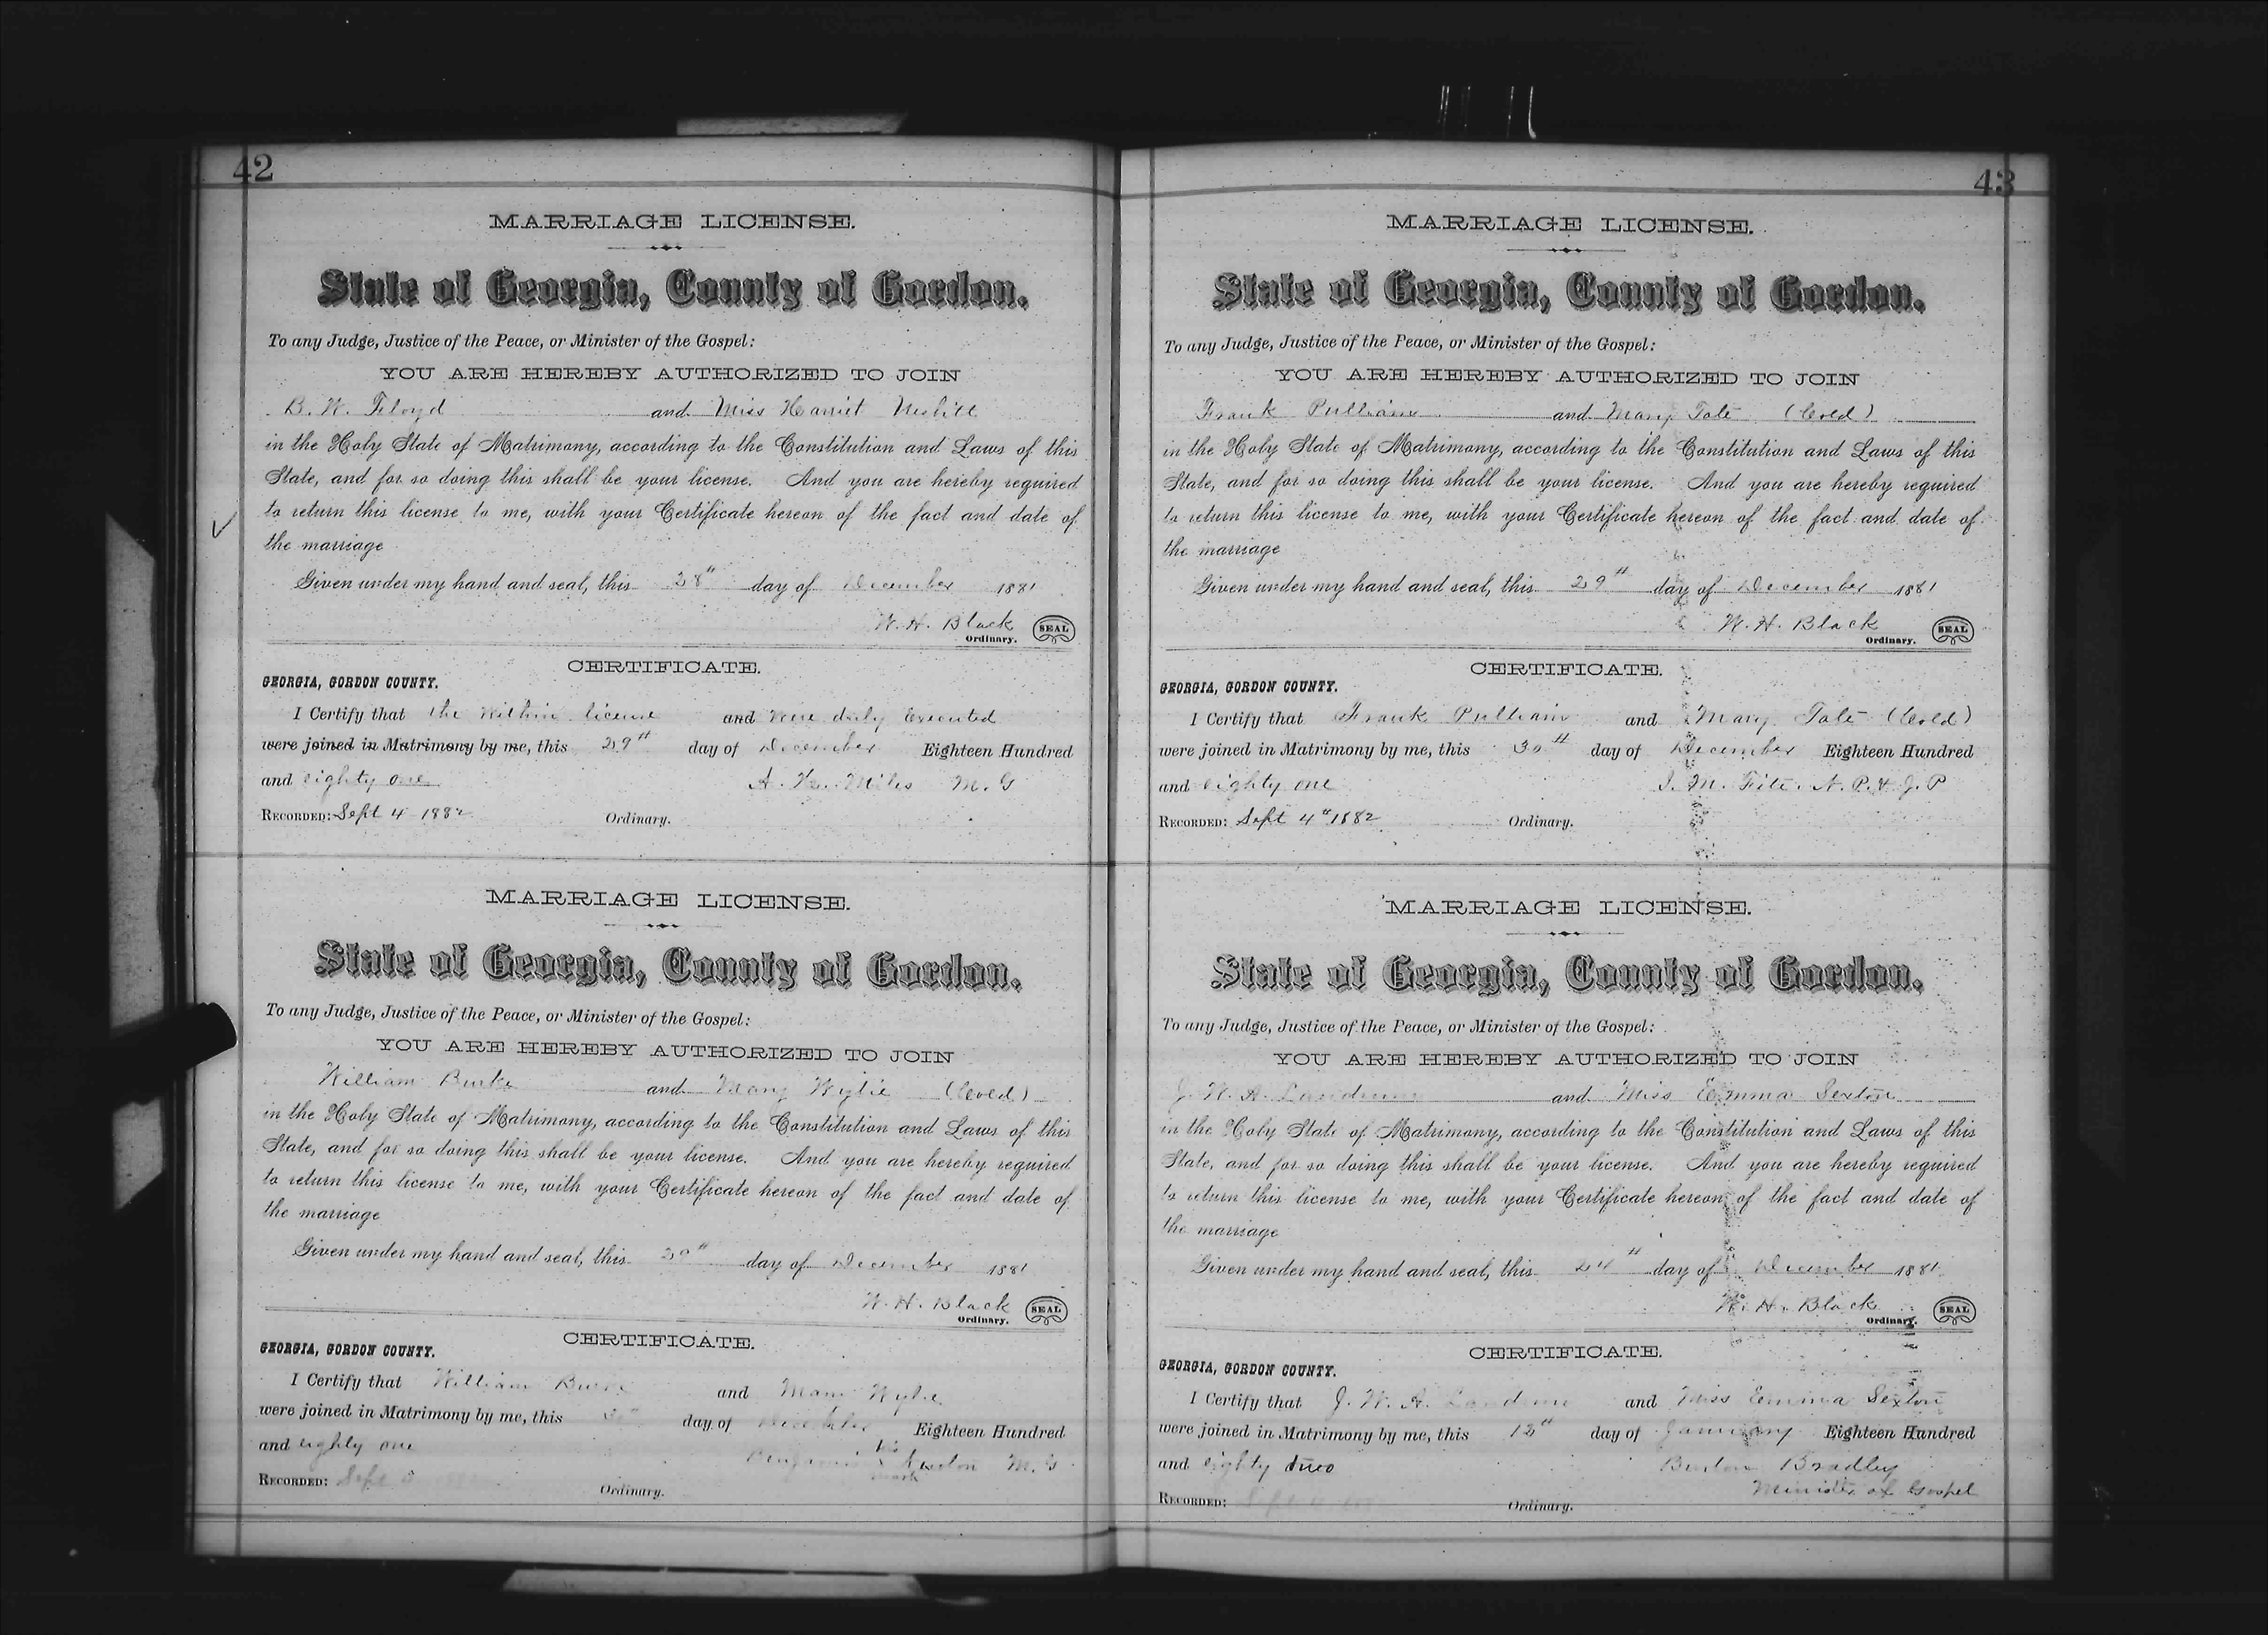 42
MARRIAGE LICENSE.
State of Georgia, County of Gordon.
To any Judge, Justice of the Peace, or Minister of the Gospel:
YOU ARE HEREBY AUTHORIZED TO JOIN
B. W. Floyd and Miss Harriet Nesbitt
in the Holy State of Matrimony, according to the Constitution and Laws of this
State, and for so doing this shall be your license. And you are hereby required
to return this license to me, with your Certificate hereon of the fact and date of
the marriage
Given under my hand and seal, this 28th day of December 1881
W. H. Black SEAL
Ordinary.
CERTIFICATE.
GEORGIA, GORDON COUNTY.
I Certify that the within license and were duly executed
were joined in Matrimony by me, this 29th day of December Eighteen Hundred
and eighty one A. Miles M. G
RECORDED: Sept 4 1882 Ordinary.
MARRIAGE LICENSE.
State of Georgia, County of Gordon.
To any Judge, Justice of the Peace, or Minister of the Gospel:
YOU ARE HEREBY AUTHORIZED TO JOIN
William Burke and Mary Wylie (Cold)
in the Holy State of Matrimony, according to the Constitution and Laws of this
State, and for so doing this shall be your license. And you are hereby required
to return this license to me, with your Certificate hereon of the fact and date of
the marriage
Given under my hand and seal, this 30th day of December 1881
W. H. Black SEAL
Ordinary.
CERTIFICATE.
GEORGIA, GORDON COUNTY.
I Certify that William Burke and Mary Wylie
were joined in Matrimony by me, this day of December Eighteen Hundred
and eighty one Benjamin his x mark M. G
RECORDED: Sept Ordinary.
43
MARRIAGE LICENSE.
State of Georgia, County of Gordon.
To any Judge, Justice of the Peace, or Minister of the Gospel:
YOU ARE HEREBY AUTHORIZED TO JOIN
Frank Pulliam and Mary Tate (Cold)
in the Holy State of Matrimony, according to the Constitution and Laws of this
State, and for so doing this shall be your license. And you are hereby required
to return this license to me, with your Certificate hereon of the fact and date of
the marriage
Given under my hand and seal, this 29th day of December 1881
W. H. Black SEAL
Ordinary.
CERTIFICATE.
GEORGIA, GORDON COUNTY.
I Certify that Frank Pulliam and Mary Tate (Cold)
were joined in Matrimony by me, this 30th day of December Eighteen Hundred
and eighty one J. M. Fite. N. P. & J. P
RECORDED: Sept 4th 1882 Ordinary.
MARRIAGE LICENSE.
State of Georgia, County of Gordon.
To any Judge, Justice of the Peace, or Minister of the Gospel:
YOU ARE HEREBY AUTHORIZED TO JOIN
J. W. A. Landrum and Miss Emma Sexton
in the Holy State of Matrimony, according to the Constitution and Laws of this
State, and for so doing this shall be your license. And you are hereby required
to return this license to me, with your Certificate hereon of the fact and date of
the marriage
Given under my hand and seal, this day of December 1881
W. H. Black SEAL
Ordinary.
CERTIFICATE.
GEORGIA, GORDON COUNTY.
I Certify that J. W. A. Landrum and Miss Emma Sexton
were joined in Matrimony by me, this day of January Eighteen Hundred
and eighty two Burton Bradley
Minister of Gospel
RECORDED: Ordinary.